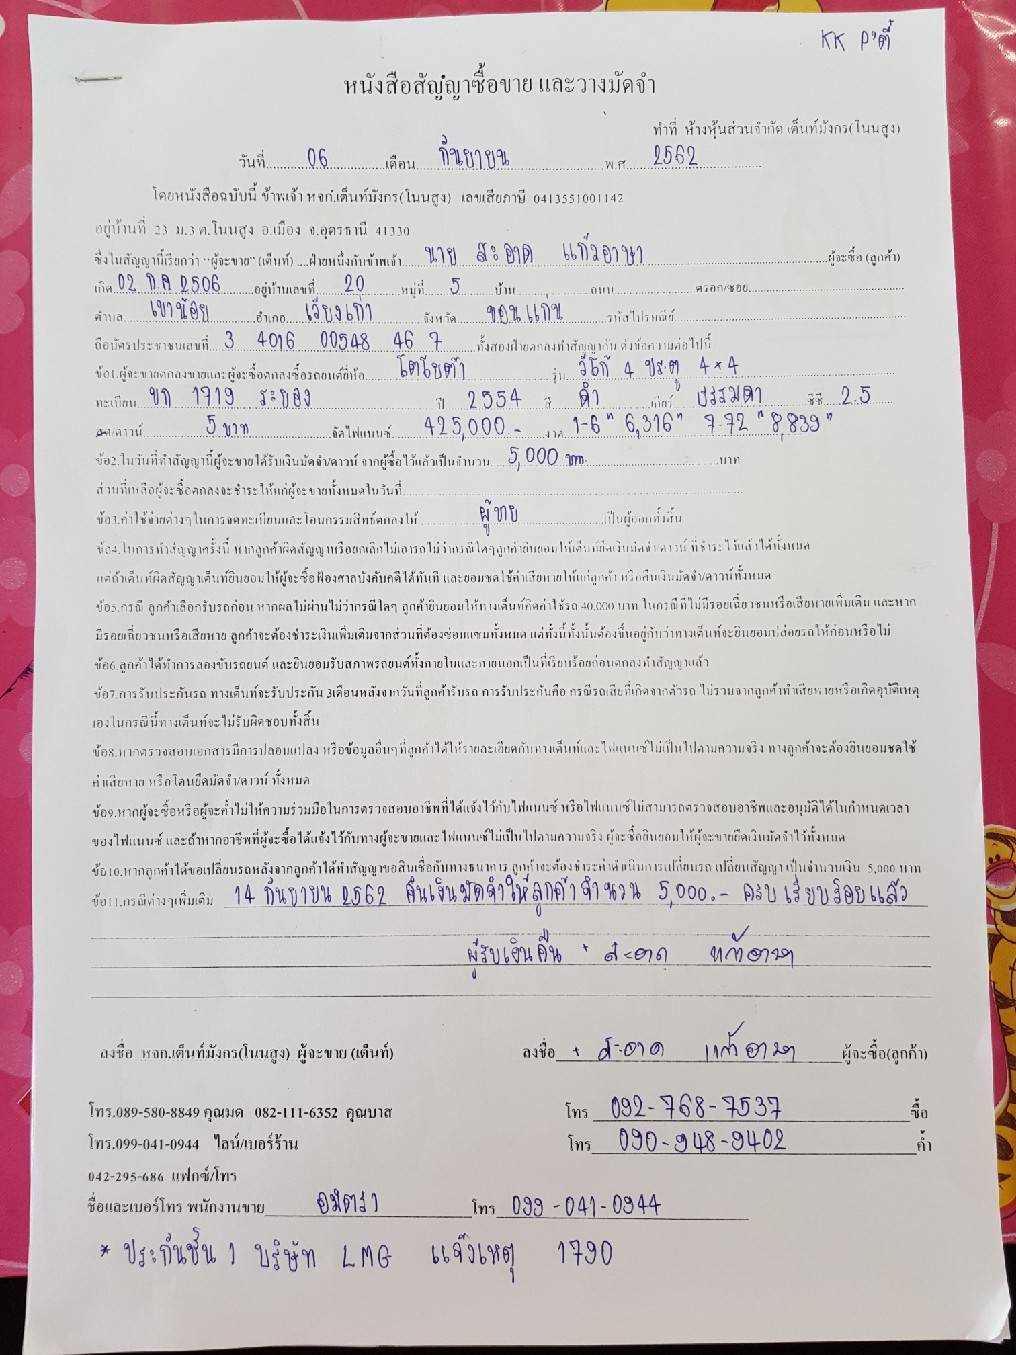 KK P'ตี้
หนังสือสัญญาซื้อขาย และวางมัดจำ
ทำที่ ห้างหุ้นส่วนจำกัด เต็นท์มังกร(โนนสูง)
วันที่ 06 เดือน กันยายน พ.ศ. 2562
โดยหนังสือฉบับนี้ ข้าพเจ้า หจก.เต็นท์มังกร(โนนสูง) เลขเสียภาษี 0413551001142
อยู่บ้านที่ 23 ม.3 ต.โนนสูง อ.เมือง จ.อุดรธานี 41330
ซึ่งในสัญญานี้เรียกว่า "ผู้จะขาย" (เต็นท์) ....ฝ่ายหนึ่งกับข้าพเจ้า นาย สะอาด แก้วอาษา ผู้จะซื้อ (ลูกค้า)
เกิด 02 ก.ค 2506 อยู่บ้านเลขที่ 20 หมู่ที่ 5 บ้าน ถนน ตรอก/ซอย
ตำบล เขาน้อย อำเภอ เวียงเก่า จังหวัด ขอนแก่น รหัสไปรษณีย์
ถือบัตรประชาชนเลขที่ 3 4016 00548 46 7 ทั้งสองฝ่ายตกลงทำสัญญากัน ดังข้อความต่อไปนี้
ข้อ1.ผู้จะขายตกลงขายและผู้จะซื้อตกลงซื้อรถยนต์ยี่ห้อ โตโยต้า รุ่น วีโก้ 4 ประตู 4×4
ทะเบียน ขก 1719 ระยอง ปี 2554 สี ดำ เกียร์ ธรรมดา ซีซี 2.5
สด/ดาวน์ 5 บาท จัดไฟแนนซ์ 425,000.- งวด 1-6 " 6,316" 7-72 " 8,839"
ข้อ2.ในวันที่ทำสัญญานี้ผู้จะขายได้รับเงินมัดจำ/ดาวน์ จากผู้ซื้อไว้แล้วเป็นจำนวน 5,000 บาท. บาท
ส่วนที่เหลือผู้จะซื้อตกลงจะชำระให้แก่ผู้จะขายทั้งหมดในวันที่
ข้อ3.ค่าใช้จ่ายต่างๆในการจดทะเบียนและโอนกรรมสิทธิ์ตกลงให้ ผู้ขาย เป็นผู้ออกทั้งสิ้น
ข้อ4.ในการทำสัญญาครั้งนี้ หากลูกค้าผิดสัญญาหรือยกเลิกไม่เอารถไม่ว่ากรณีใดๆลูกค้ายินยอมให้เต็นท์ยึดเงินมัดจำ/ดาวน์ ที่ชำระไว้แล้วได้ทั้งหมด
แต่ถ้าเต็นท์ผิดสัญญาเต็นท์ยินยอมให้ผู้จะซื้อฟ้องศาลบังคับคดีได้ทันที และยอมชดใช้ค่าเสียหายให้แก่ลูกค้า หรือคืนเงินมัดจำ/ดาวน์ทั้งหมด
ข้อ5.กรณี ลูกค้าเลือกรับรถก่อน หากผลไม่ผ่านไม่ว่ากรณีใดๆ ลูกค้ายินยอมให้ทางเต็นท์คิดค่าใช้รถ 40,000 บาท ในกรณีที่ไม่มีรอยเฉี่ยวชนหรือเสียหายเพิ่มเติม และหาก
มีรอยเฉี่ยวชนหรือเสียหาย ลูกค้าจะต้องชำระเงินเพิ่มเติมจากส่วนที่ต้องซ่อมแซมทั้งหมด แต่ทั้งนี้ทั้งนั้นต้องขึ้นอยู่กับว่าทางเต็นท์จะยินยอมปล่อยรถให้ก่อนหรือไม่
ข้อ6.ลูกค้าได้ทำการลองขับรถยนต์ และยินยอมรับสภาพรถยนต์ทั้งภายในและภายนอกเป็นที่เรียบร้อยก่อนตกลงทำสัญญาแล้ว
ข้อ7.การรับประกันรถ ทางเต็นท์จะรับประกัน 3เดือนหลังจากวันที่ลูกค้ารับรถ การรับประกันคือ กรณีรถเสียที่เกิดจากตัวรถ ไม่รวมจากลูกค้าทำเสียหายหรือเกิดอุบัติเหตุ
เองในกรณีนี้ทางเต็นท์จะไม่รับผิดชอบทั้งสิ้น
ข้อ8.หากตรวจสอบเอกสารมีการปลอมแปลง หรือข้อมูลอื่นๆที่ลูกค้าได้ให้รายละเอียดกับทางเต็นท์และไฟแนนซ์ไม่เป็นไปตามความจริง ทางลูกค้าจะต้องยินยอมชดใช้
ค่าเสียหาย หรือโดนยึดมัดจำ/ดาวน์ ทั้งหมด
ข้อ9.หากผู้จะซื้อหรือผู้จะค้ำไม่ให้ความร่วมมือในการตรวจสอบอาชีพที่ได้แจ้งไว้กับไฟแนนซ์ หรือไฟแนนซ์ไม่สามารถตรวจสอบอาชีพและอนุมัติได้ในกำหนดเวลา
ของไฟแนนซ์ และถ้าหากอาชีพที่ผู้จะซื้อได้แจ้งไว้กับทางผู้จะขายและไฟแนนซ์ไม่เป็นไปตามความจริง ผู้จะซื้อยินยอมให้ผู้จะขายยึดเงินมัดจำไว้ทั้งหมด
ข้อ10.หากลูกค้าได้ขอเปลี่ยนรถหลังจากลูกค้าได้ทำสัญญาขอสินเชื่อกับทางธนาคาร ลูกค้าจะต้องชำระค่าดำเนินการเปลี่ยนรถ เปลี่ยนสัญญา เป็นจำนวนเงิน 5,000 บาท
ข้อ11.กรณีต่างๆเพิ่มเติม 14 กันยายน 2562 คืนเงินมัดจำให้ลูกค้าจำนวน 5,000.- ครบ เรียบร้อยแล้ว
ผู้รับเงินคืน + สะอาด แก้วอาษา
ลงชื่อ หจก.เต็นท์มังกร(โนนสูง) ผู้จะขาย (เต็นท์) ลงชื่อ + สะอาด แก้วอาษา ผู้จะซื้อ(ลูกค้า)
โทร.089-580-8849 คุณมด 082-111-6352 คุณบาส โทร 092-768-7537 ซื้อ
โทร.099-041-0944 ไลน์/เบอร์ร้าน โทร 090-948-9402 ค้ำ
042-295-686 แฟกซ์/โทร
ชื่อและเบอร์โทร พนักงานขาย อมิตรา โทร 099-041-0944
* ประกันชั้น 1 บริษัท LMG แจ้งเหตุ 1790